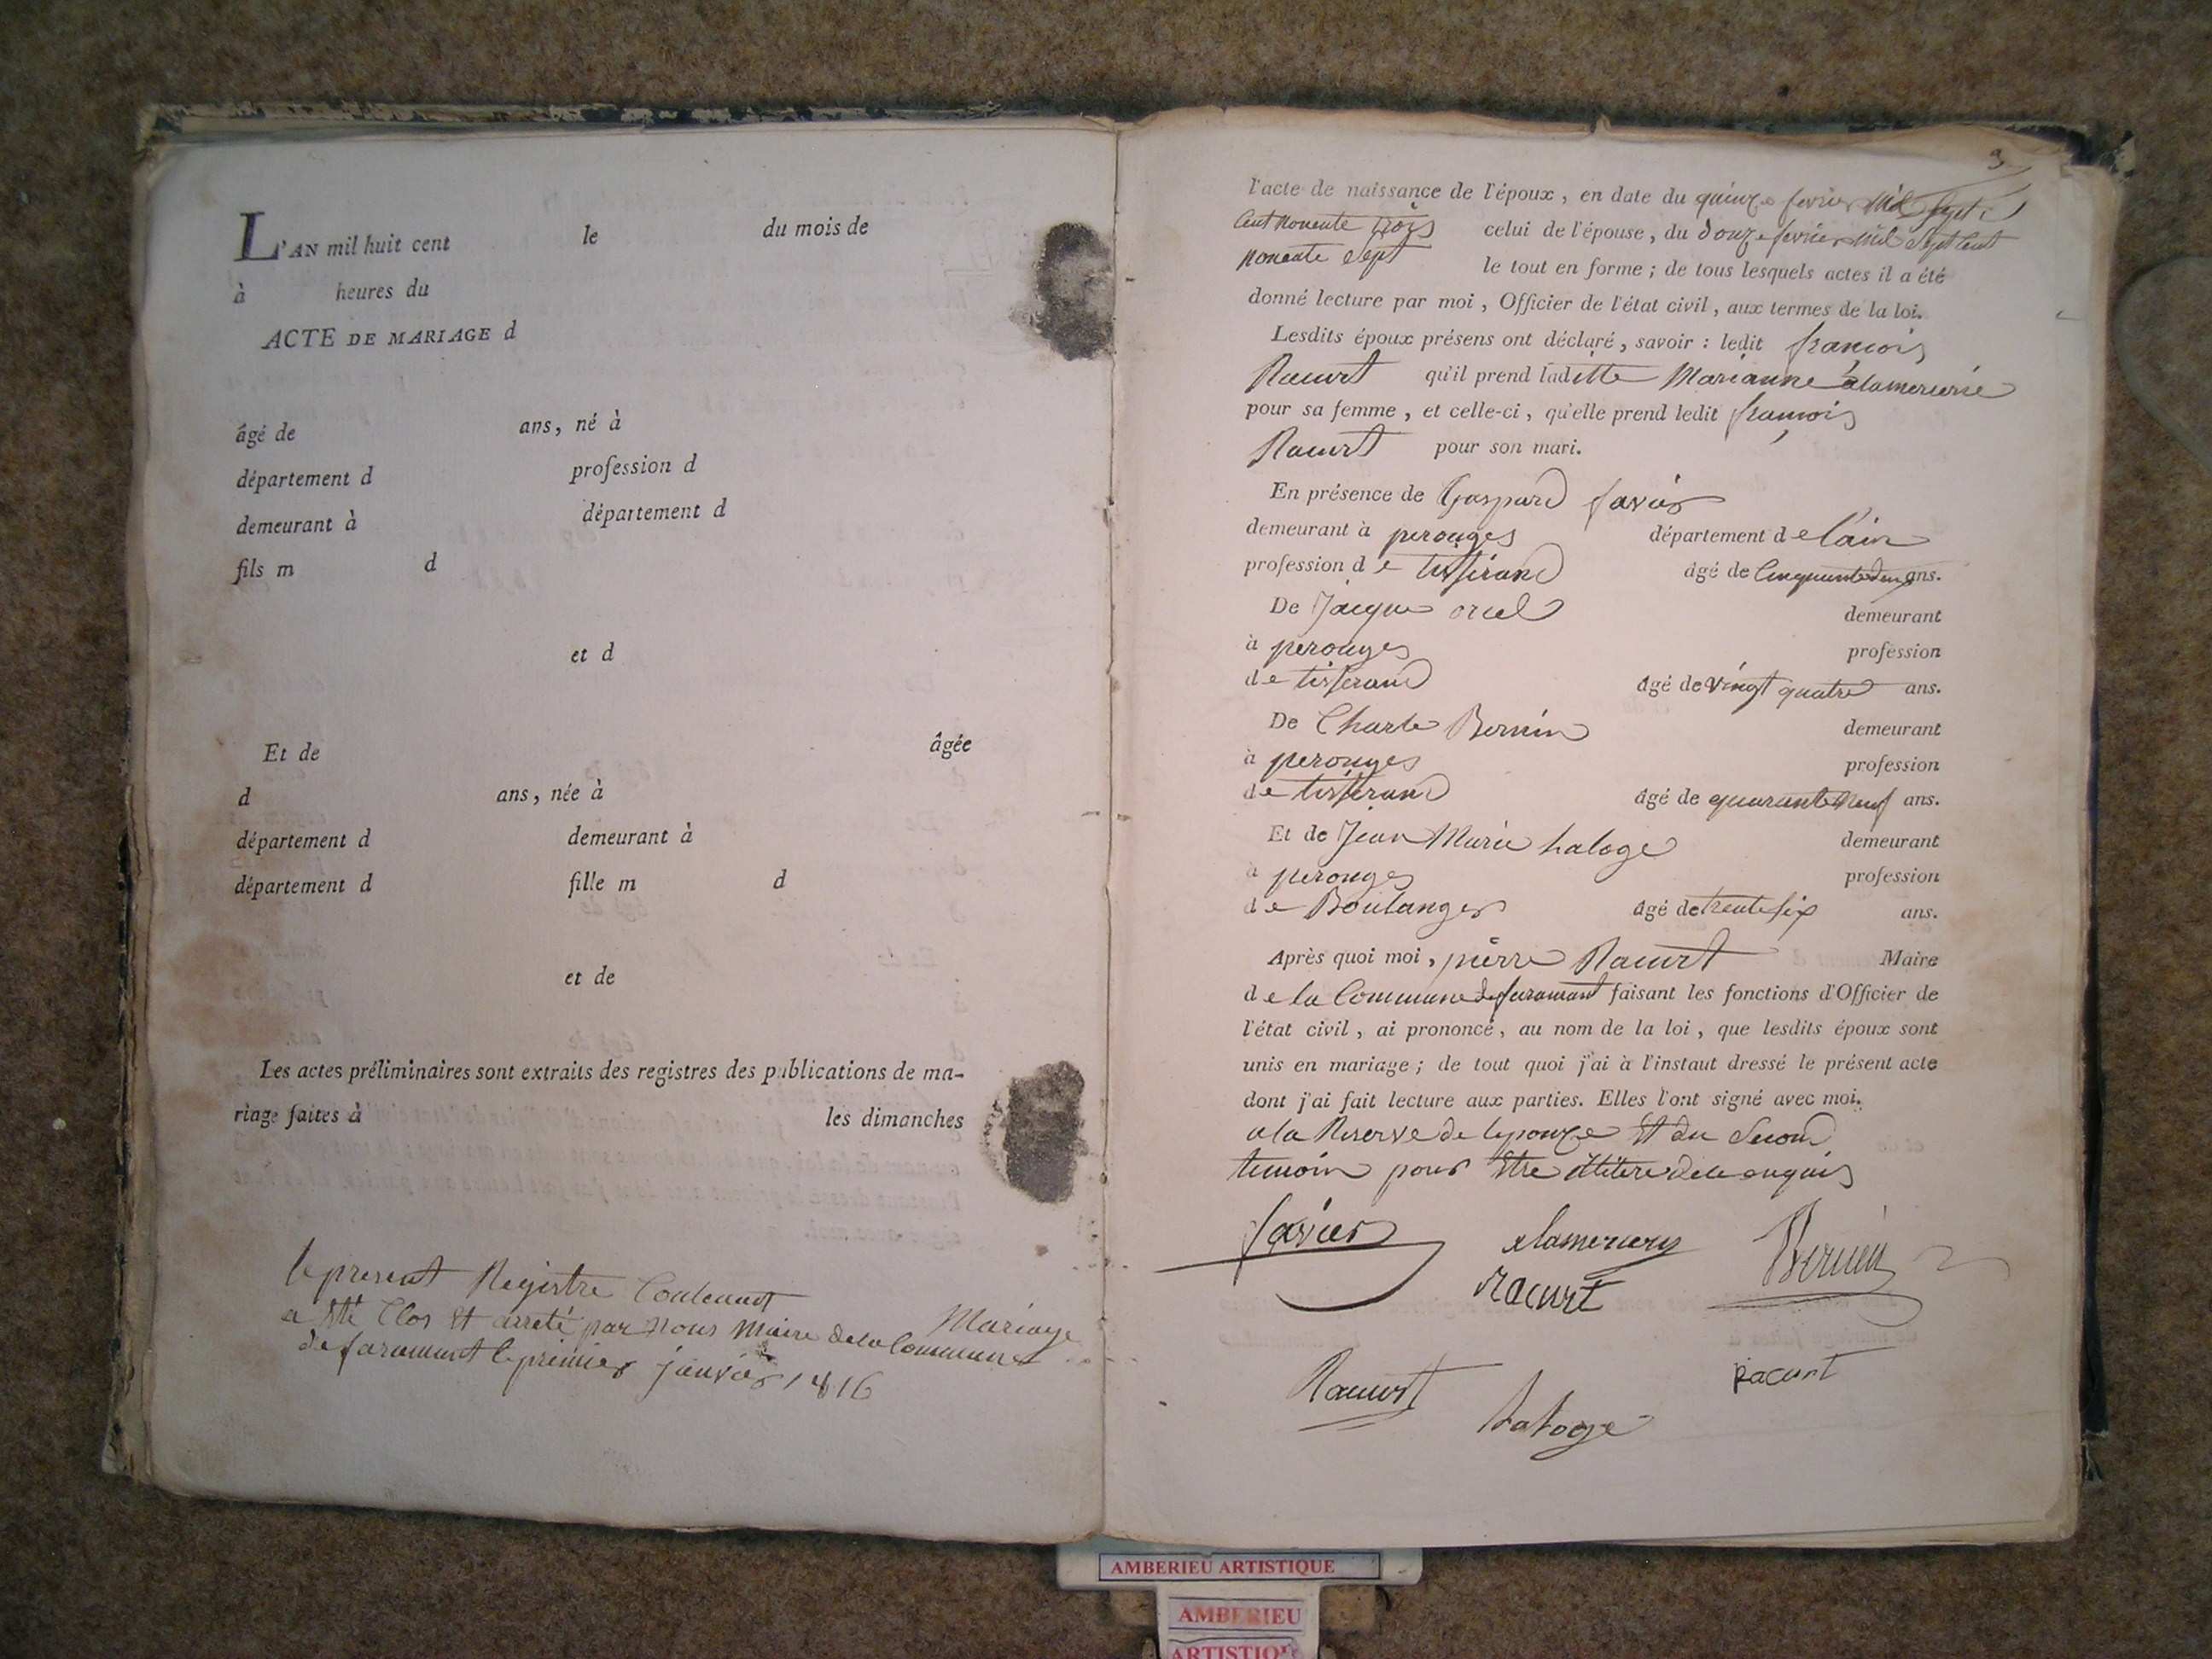 L'AN mil huit cent le du mois de
à heures du
ACTE DE MARIAGE d
âgé de ans, né à
département d profession d
demeurant à département d
fils m d
et d
Et de âgée
d ans, née à
département d demeurant à
département d fille m d
et de
Les actes préliminaires sont extraits des registres des publications de ma-
riage faites à les dimanches
le present Registre Contenant Mariage
a Eté Clos Et arreté par Nous Maire de la Commune
de faramant le premier janvier 1816
3
l'acte de naissance de l'époux, en date du quinze fevrier Mil Sept
Cent Nonente trois celui de l'épouse, du douze fevrier mil Sept Cent
Nonente Sept le tout en forme; de tous lesquels actes il a été
donné lecture par moi, Officier de l'état civil, aux termes de la loi.
Lesdits époux présens ont déclaré, savoir: ledit françois
Racurt qu'il prend laditte Marianne alamercerie
pour sa femme, et celle-ci, qu'elle prend ledit françois
Racurt pour son mari.
En présence de Gaspard favier
demeurant à perouges département de l'ain
profession de tisserand âgé de Cinquante deux ans.
De Jacque orcel demeurant
à perouges profession
de tisserand âgé de Vingt quatre ans.
De Charle Bernin demeurant
à perouges profession
de tisserand âgé de quarante Neuf ans.
Et de Jean Marie haloge demeurant
à perouges profession
de Boulanger âgé de trente six ans.
Après quoi moi, pierre Racurt Maire
de la Commune de faramant faisant les fonctions d'Officier de
l'état civil, ai prononcé, au nom de la loi, que lesdits époux sont
unis en mariage; de tout quoi j'ai à l'instant dressé le présent acte
dont j'ai fait lecture aux parties. Elles l'ont signé avec moi.
a la Reserve de lepouze Et du Second
temoin pour Etre illitere de ce enquis
favier alamercery Bernin
racurt
Racurt racurt
haloge
AMBERIEU ARTISTIQUE
AMBERIEU
ARTISTIQUE